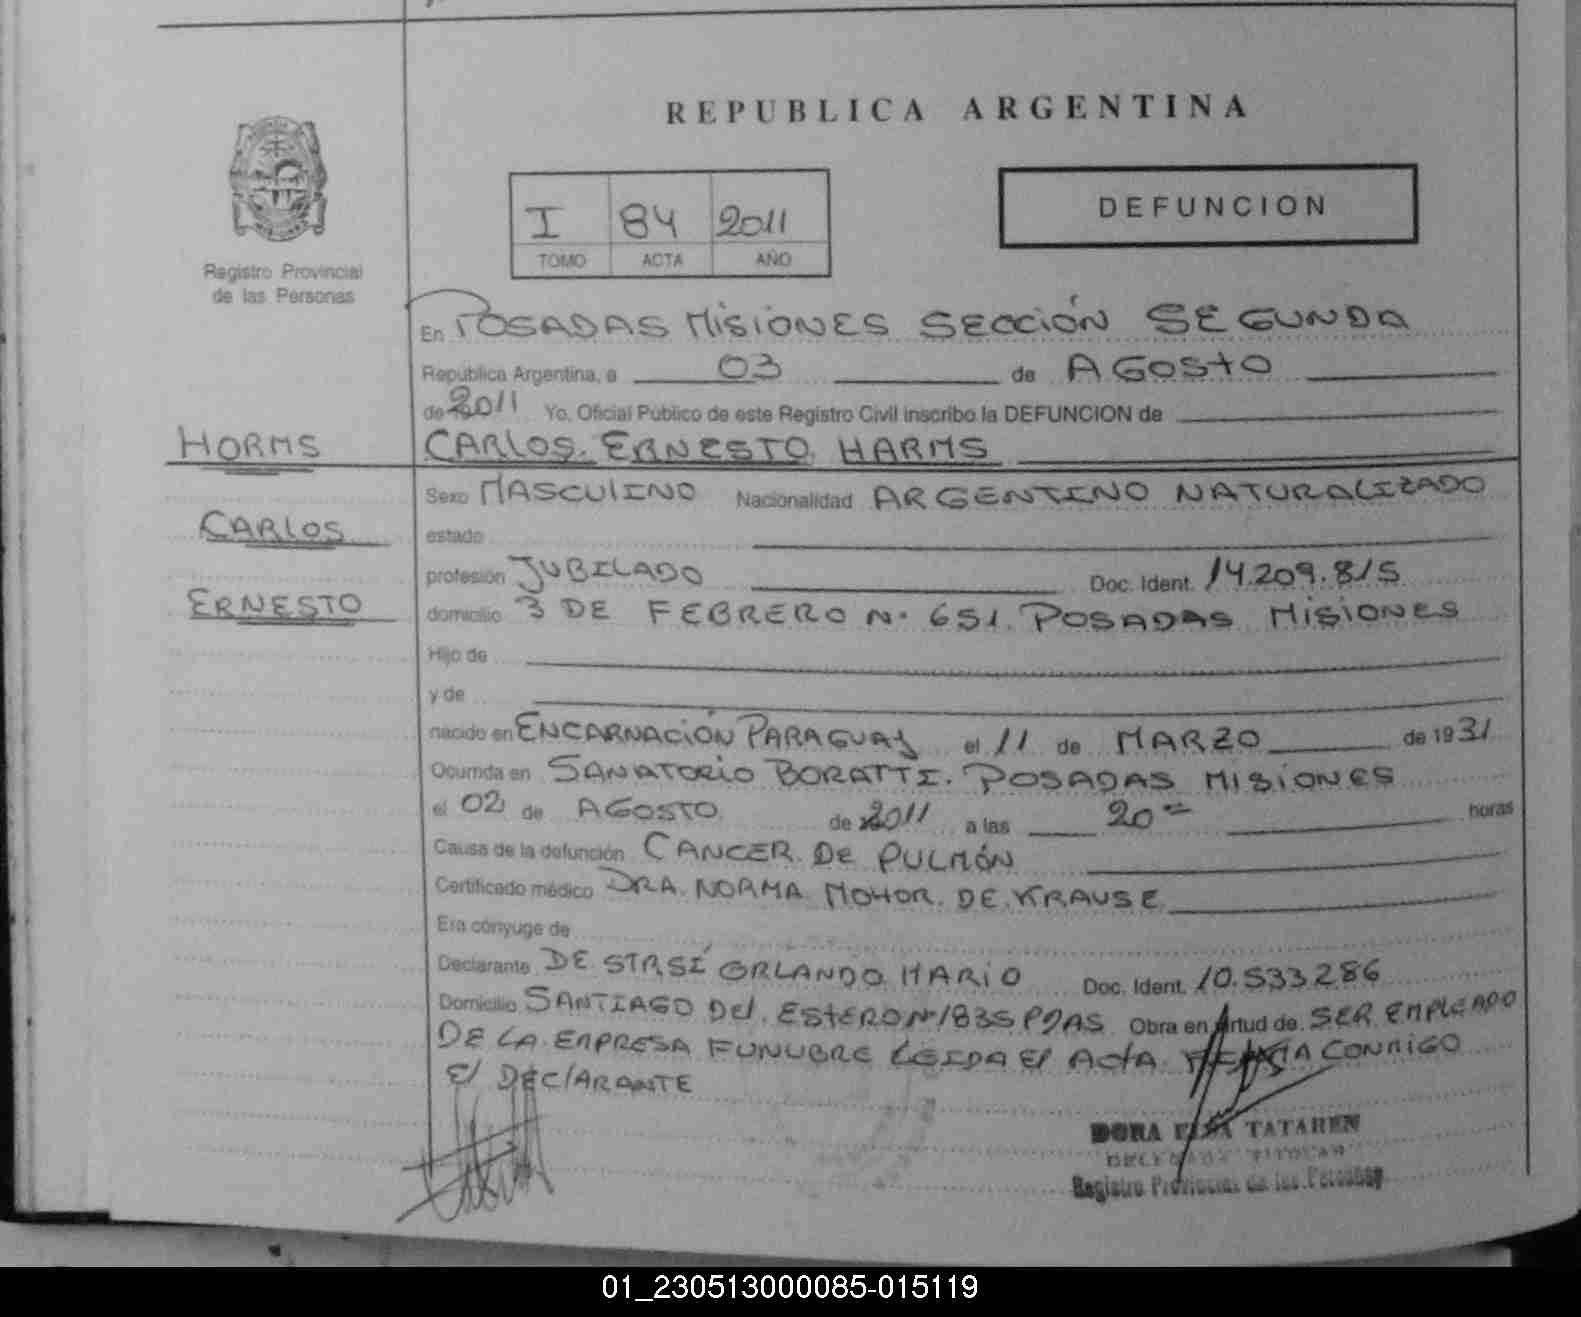 REPUBLICA ARGENTINA
Registro Provincial
de las Personas
I 84 2011
TOMO ACTA AÑO
DEFUNCION
En POSADAS MISIONES SECCIÓN SEGUNDA
Republica Argentina, a 03 de AGOSTO
de 2011 Yo. Oficial Publico de este Registro Civil inscribo la DEFUNCION de
HORMS
CARLOS
ERNESTO
CARLOS. ERNESTO HARMS
Sexo MASCULINO Nacionalidad ARGENTINO NATURALIZADO
estado
profesión JUBILADO Doc. Ident. 14.209.815
domicilio 3 DE FEBRERO N. 651. POSADAS MISIONES
Hijo de
y de
nacido en ENCARNACIÓN PARAGUAY el 11 de MARZO de 1931
Ocurrida en SANATORIO BORATTI. POSADAS MISIONES
el 02 de AGOSTO de 2011 a las 20 horas
Causa de la defunción CANCER DE PULMÓN
Certificado médico DRA. NORMA MOHOR. DE KRAUSE
Era cónyuge de
Declarante DE ORLANDO MARIO Doc. Ident. 10.533.286
Domicilio SANTIAGO DEL ESTERO Nº 1835 PDAS Obra en virtud de SER EMPLEADO
DE LA EMPRESA FUNUBRE LEIDA El ACTA CONMIGO
El DEClARANTE
DORA TATAREN
Registro Provincial de las Personas
01_230513000085-015119